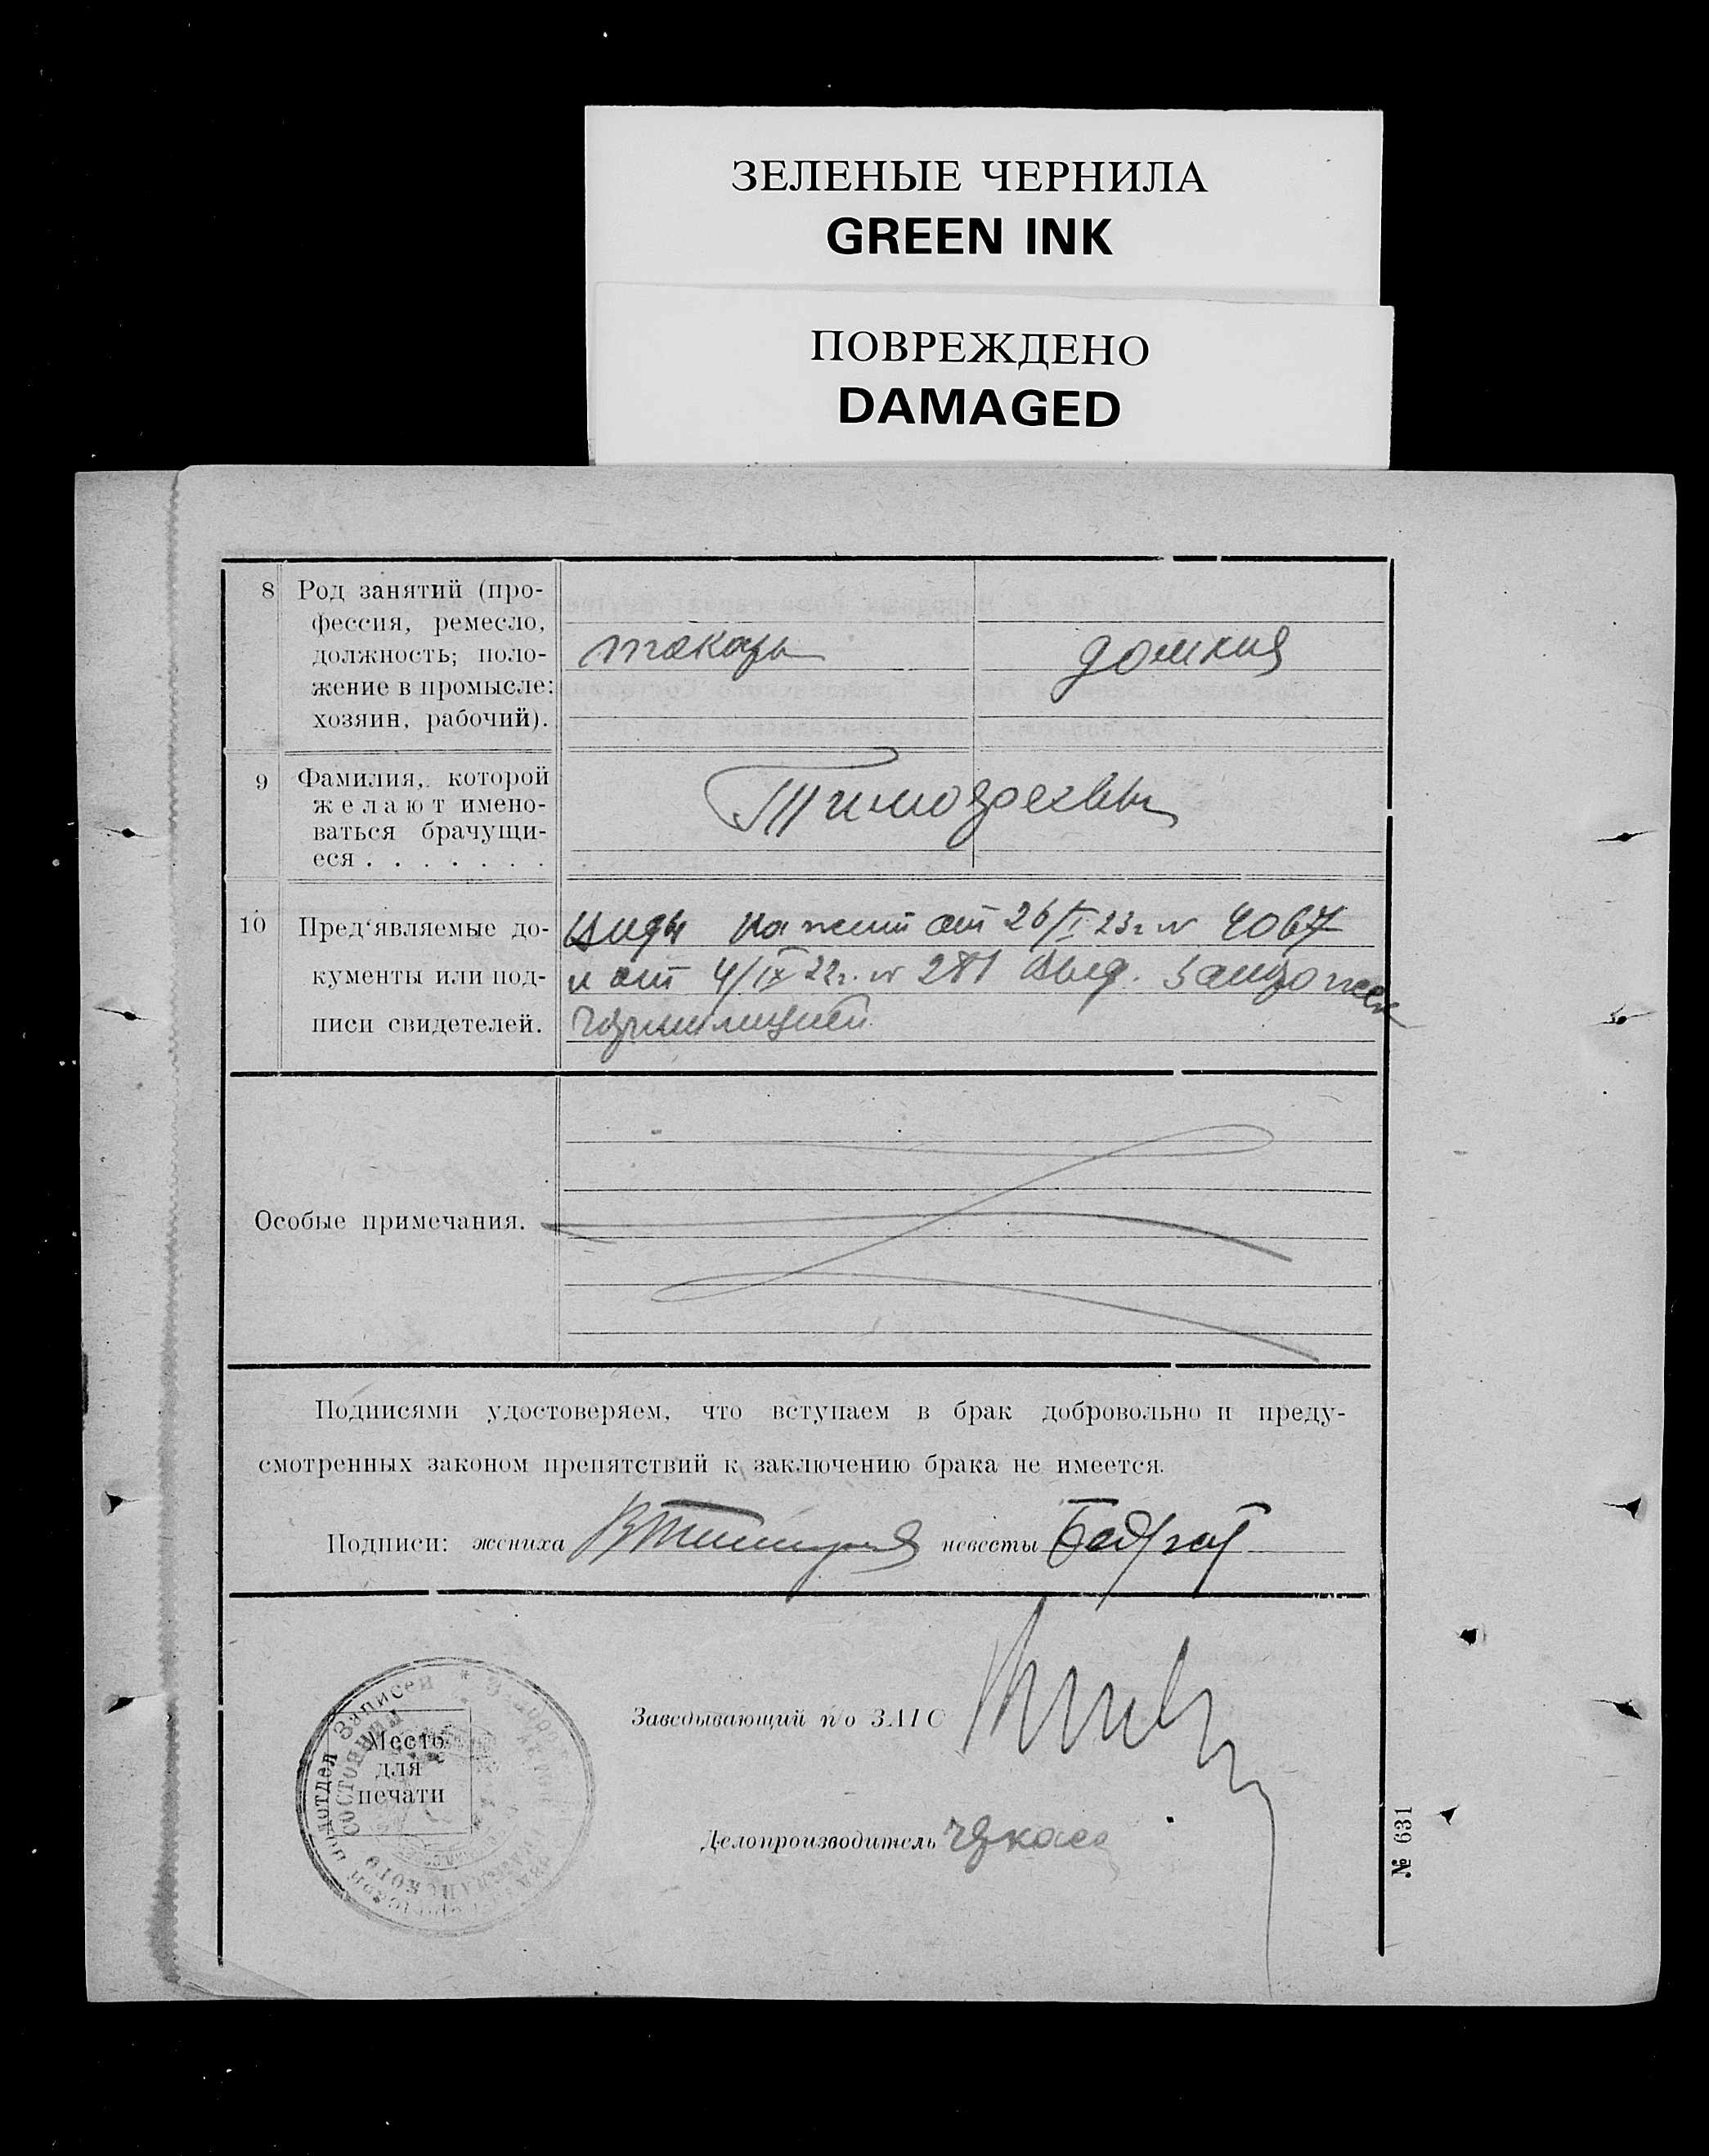 ЗЕЛЕНЫЕ ЧЕРНИЛА
GREEN INK
ПОВРЕЖДЕНО
DAMAGED
8 Род занятий (про-
фессия, ремесло,
должность; поло-
жение в промысле:
хозяин, рабочий).
токарь
домхоз
9 Фамилия, которой
желают имено-
ваться брачущи-
еся . . . . . . .
10 Пред‘являемые до-
кументы или под-
писи свидетелей.
Виды на жит от 26/I 23г. №
и от 4/IX 22г. № 281 выд.
гормилицией
Особые примечания.
Подписями удостоверяем, что вступаем в брак добровольно и преду-
смотренных законом препятствий к заключению брака не имеется.
Подписи: жениха невесты
Заведывающий п/о ЗАГС
Место
для
печати
Подотдел Записей
Состояния
Делопроизводитель
№ 631